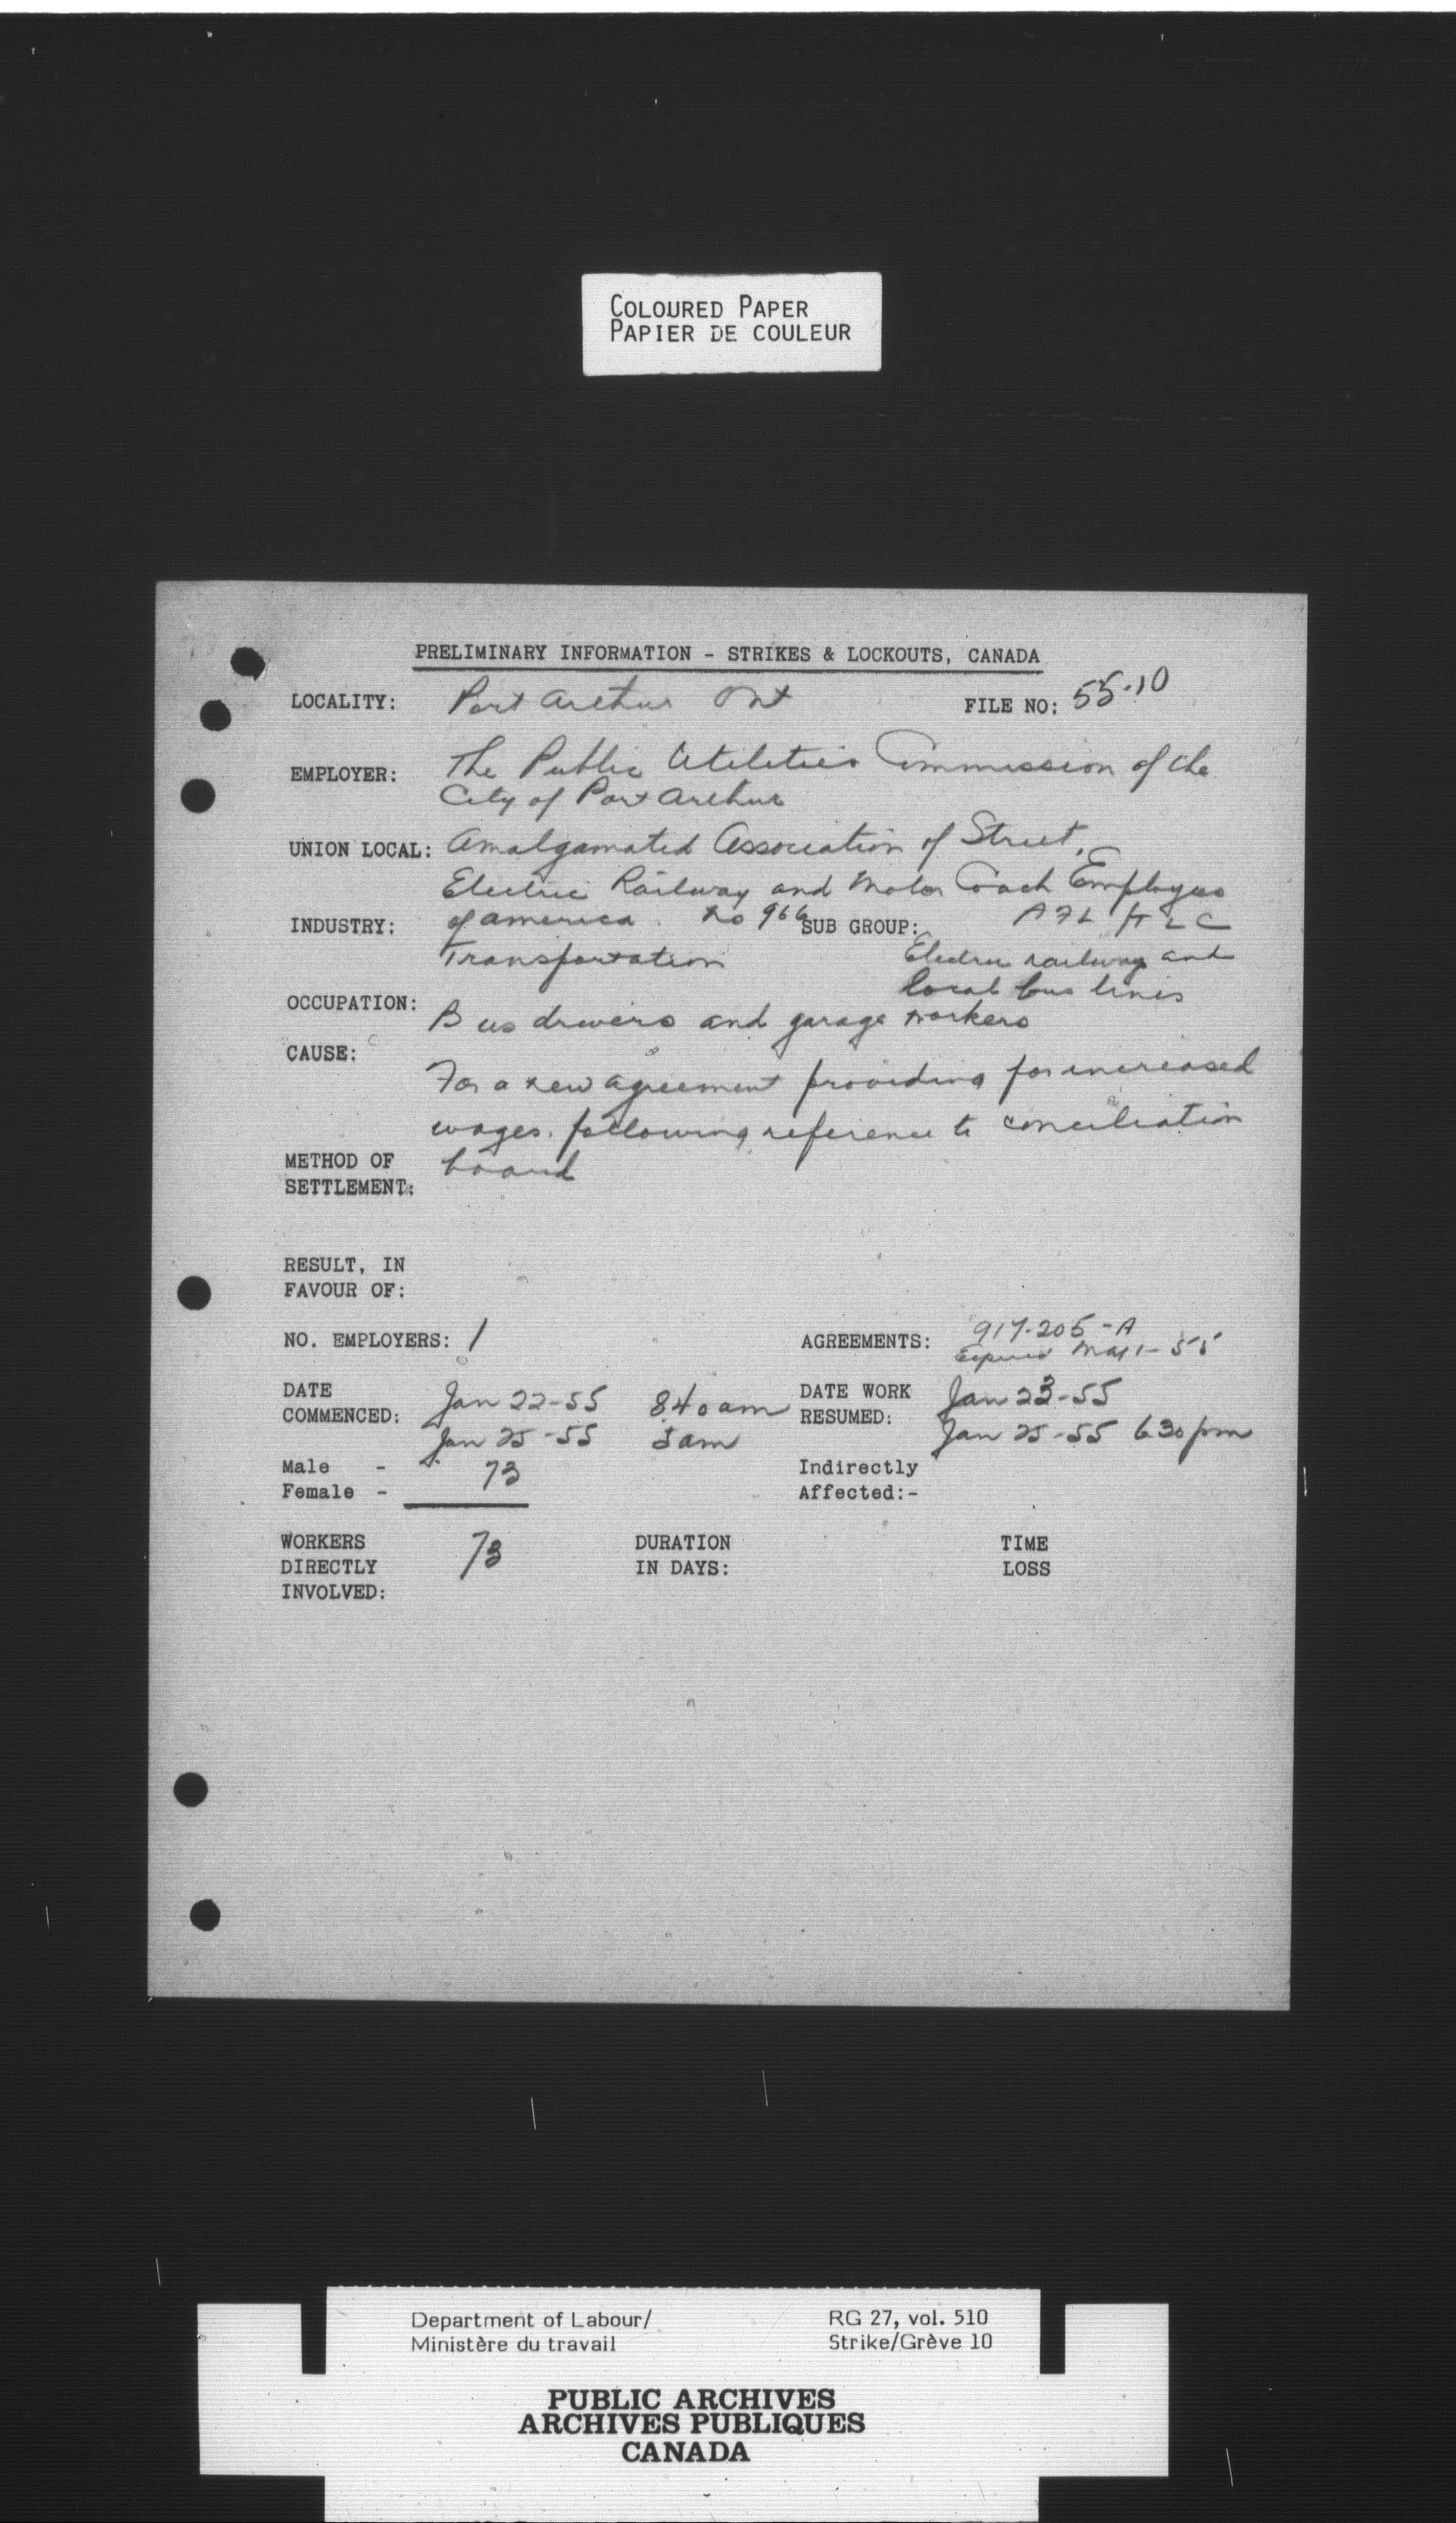 COLOURED PAPER
PAPIER DE COULEUR
PRELIMINARY INFORMATION - STRIKES & LOCKOUTS, CANADA
LOCALITY: Port Arthur Ont FILE NO: 55-10
EMPLOYER: The Public Utilities Commission of the
City of Port Arthur
UNION LOCAL: Amalgamated Association of Street,
Electric Railway and Motor Coach Employees
of America. No 966 AFL TLC
INDUSTRY: Transportation SUB GROUP: Electric railway and
local bus lines
OCCUPATION: Bus drivers and garage workers
CAUSE: For a new agreement providing for increased
wages, following reference to conciliation
board
METHOD OF
SETTLEMENT:
RESULT, IN
FAVOUR OF:
NO. EMPLOYERS: 1 AGREEMENTS: 917-205-A
Expires 1-55
DATE COMMENCED: Jan 22-55 8 40 am DATE WORK RESUMED: Jan 23-55
Jan 25-55 5 am Jan 25-55 6 30 pm
Male - 73 Indirectly
Female - Affected:-
WORKERS 73 DURATION TIME
DIRECTLY IN DAYS: LOSS
INVOLVED:
Department of Labour/ RG 27, vol. 510
Ministère du travail Strike/Grève 10
PUBLIC ARCHIVES
ARCHIVES PUBLIQUES
CANADA